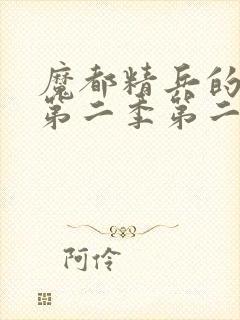 魔都精兵的
第二季第二
阿伶